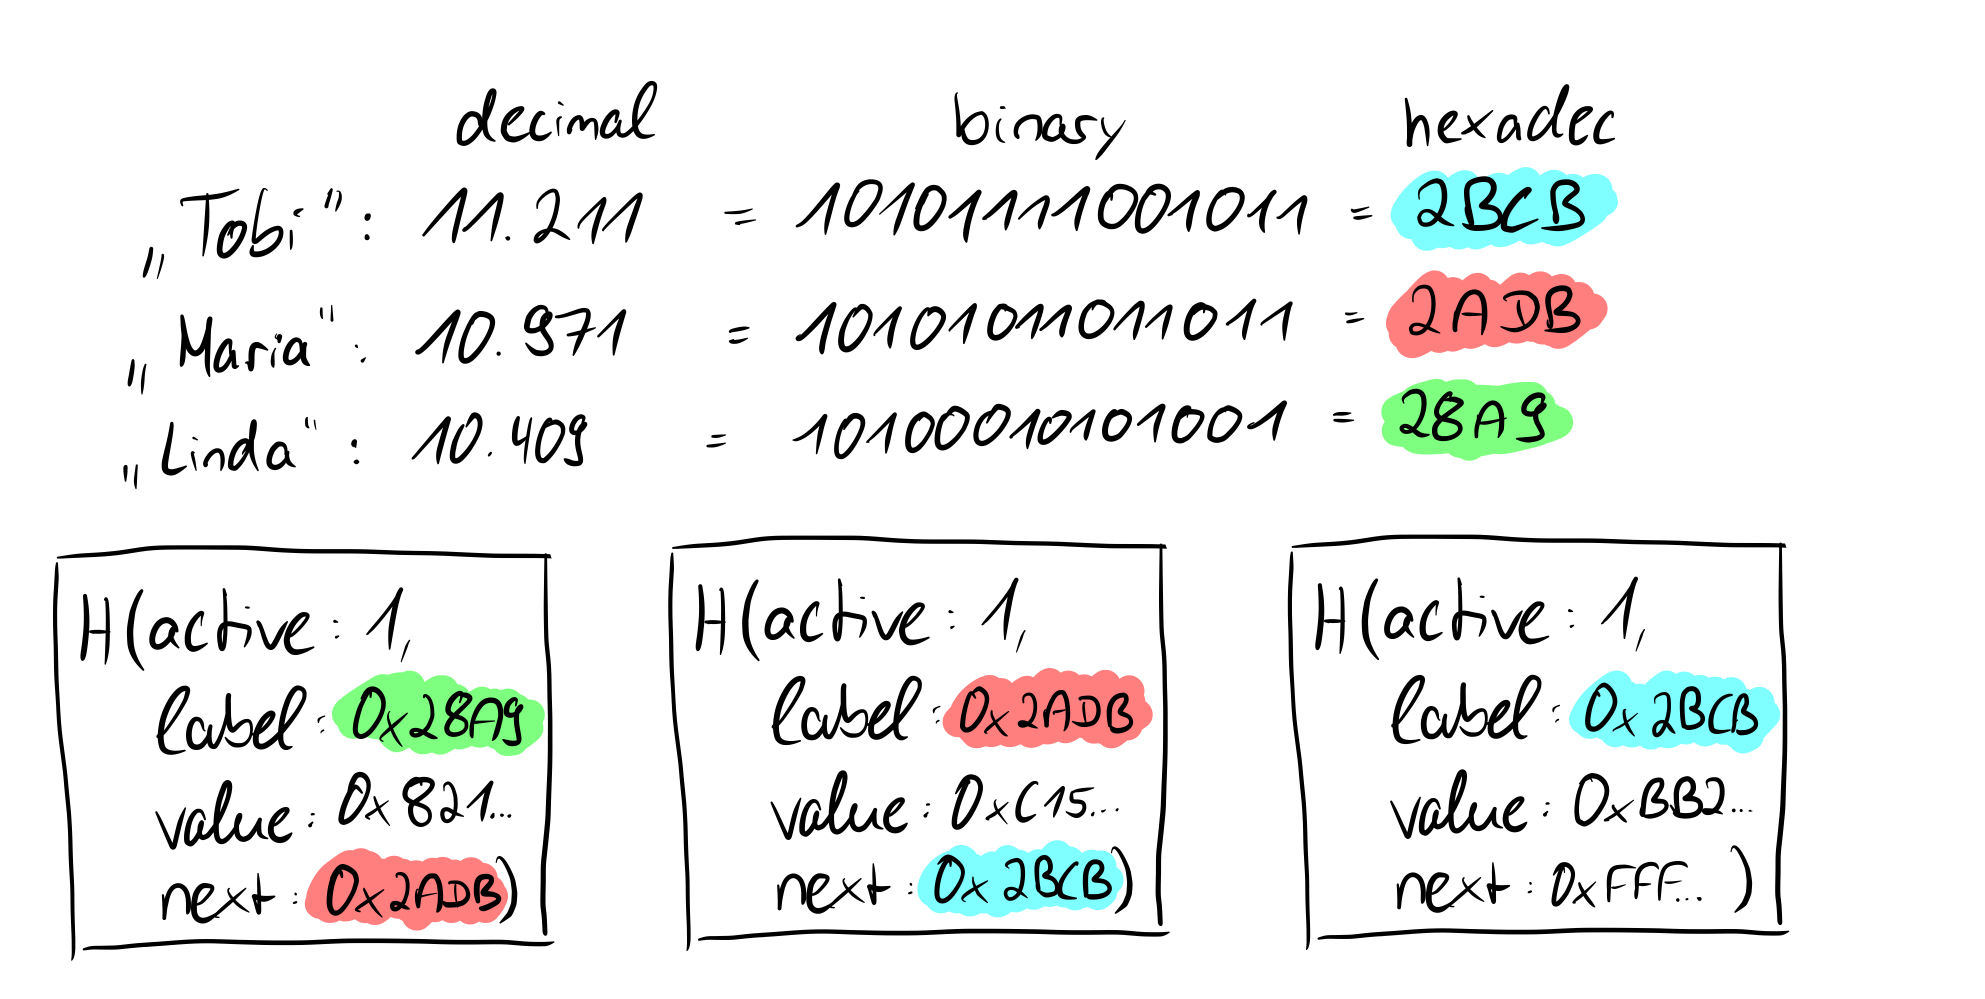 decimal binary hexadec
„Tobi": 11.211 = 10101111001011 = 2BCB
„Maria": 10.971 = 10101011011011 = 2ADB
„Linda": 10.409 = 10100010101001 = 28A9
H(active: 1,
label: 0x28A9
value: 0x821...
next: 0x2ADB)
H(active: 1,
label: 0x2ADB
value: 0xC15...
next: 0x2BCB)
H(active: 1,
label: 0x2BCB
value: 0xBB2...
next: 0xFFF...)